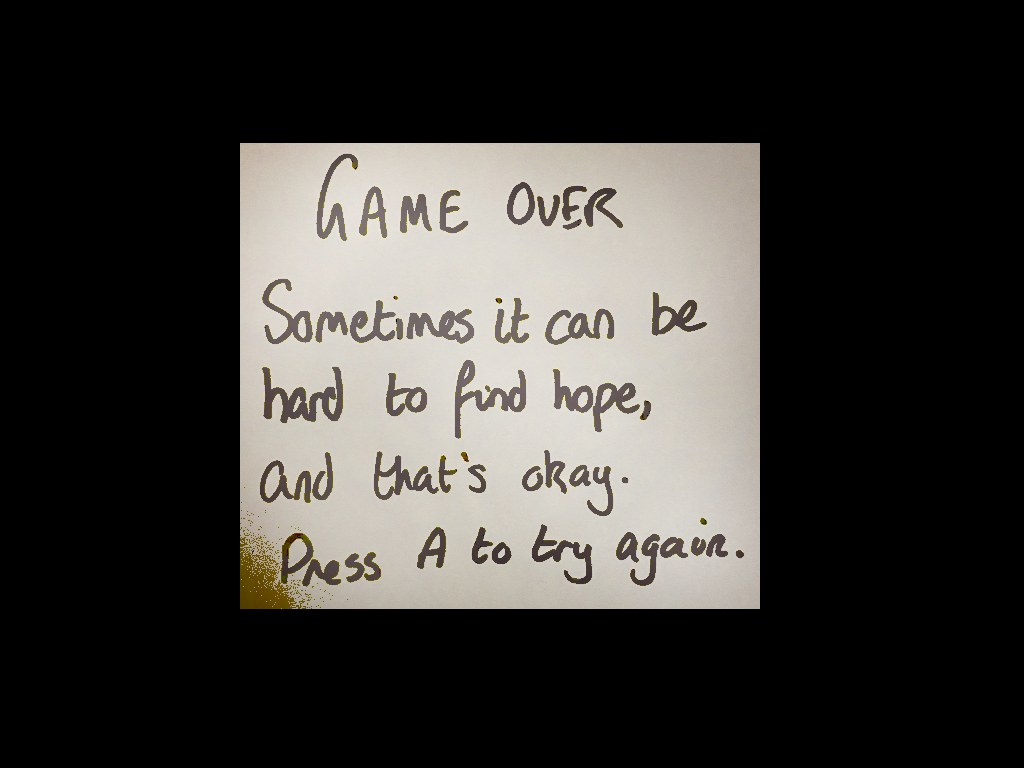 GAME OVER
Sometimes it can be
hard to find hope,
and that's okay.
Press A to try again.